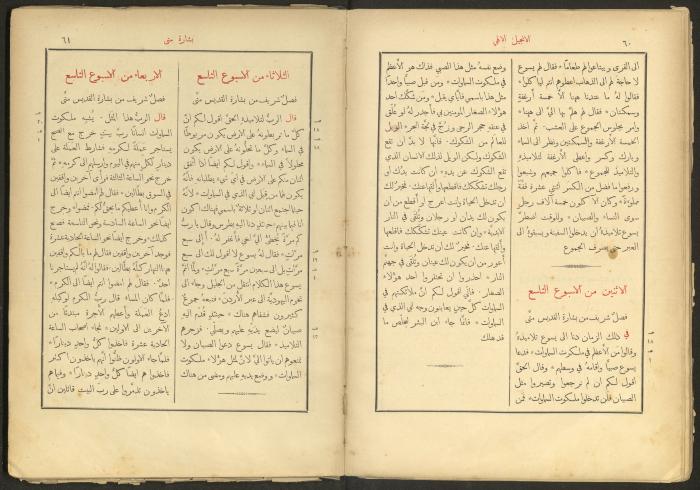 ٦٠
الانجيل الالهي
الى القرى ويبتاعوا لهم طعاماً * فقال لهم يسوع
لا حاجة لهم الى الذهاب اعطوهم انتم ليأكلوا *
فقالوا لهُ ما عندنا ههنا الَّا خمسة ارغفةٍ
وسمكتان * فقال لهم هلمَّ بها اليَّ الى ههنا *
وامر بجلوس الجموع على العشب * ثم اخذ
الخمسة الارغفة والسمكتين ونظر الى السماءِ
وبارك وكسر واعطى الارغفة لتلاميذهِ
والتلاميذ للجموع * فاكلوا جميعهم وشبعوا
ورفعوا ما فضل من الكسر اثنتي عشرة قفَّةً
مملوءةً * وكان الآكلون خمسة آلاف رجلٍ
سوى النساءِ والصبيان * وللوقت اضطرَّ
يسوع تلاميذهُ ان يدخلوا السفينة ويسبقوهُ الى
العبر حتى يصرف الجموع
الاثنين من الاسبوع التاسع
فصلٌ شريف من بشارة القديس متَّى
في ذلك الزمان دنا الى يسوع تلاميذهُ
وقالوا مَن الأعظم في ملكوت السماوات * فدعا
يسوع صبيًّا واقامهُ في وسطهم * وقال الحقَّ
اقول لكم ان لم ترجعوا وتصيروا مثل
الصبيان فلن تدخلوا ملكوت السماوات * فمَن
وضع نفسهُ مثل هذا الصبي فذاك هو الأعظم
في ملكوت السماوات * ومن قبل صبيًّا واحدًا
مثل هذا باسمي فايَّاي يقبل * ومن شكَّك احد
هؤلاءِ الصغار المؤمنين بي فأجدر لهُ لو عُلِّق
في عنقهِ حجر الرحى وزُجَّ في لجَّة البحر * الويل
للعالم من الشكوك * فانها لا بدَّ ان تقع
الشكوك ولكن الويل لذلك الانسان الذي
تقع الشكوك عن يدهِ * ان كانت يدك او
رجلك تشكِّكك فاقطعها والقها عنك * فخيرٌ لك
ان تدخل الحياة وانت اعرج او اقطع من ان
يكون لك يدان او رجلان وتُلقَى في النار
الابديَّة * وان كانت عينك تشكِّكك فاقلعها
والقها عنك * فخيرٌ لك ان تدخل الحياة وانت
اعور من ان يكون لك عينان وتُلقَى في جهنَّم
النار * احذروا ان تحتقروا احد هؤلاءِ
الصغار * فاني اقول لكم انَّ ملائكتهم في
السماوات كلَّ حينٍ يعاينون وجه ابي الذي في
السماوات * فانما جاءَ ابن البشر ليخلِّص ما
قد هلك
بشارة متى
٦١
الثلاثاء من الاسبوع التاسع
فصلٌ شريف من بشارة القديس متَّى
قال الربُّ لتلاميذهِ الحقَّ اقول لكم انَّ
كلَّ ما تربطونهُ على الارض يكون مربوطًا
في السماءِ وكلَّ ما تحلُّونهُ على الارض يكون
محلولاً في السماءِ * واقول لكم ايضًا اذا اتَّفق
اثنان منكم على الارض في ايّ شيءٍ يطلبانهِ فانهُ
يكون لهما من قِبَل ابي الذي في السماوات * لانهُ
حيثما اجتمع اثنان او ثلاثة باسمي فهناك اكون
انا فيما بينهم * حينئذٍ دنا اليهِ بطرس وقال يا ربُّ
كم مرَّةً يخطئُ اليَّ اخي فأغفر لهُ * أإلى سبع
مرَّاتٍ * فقال لهُ يسوع لا اقول لك الى سبع
مرَّاتٍ بل الى سبعين مرَّةً سبع مرَّاتٍ * ولمَّا اتمَّ
يسوع هذا الكلام انتقل من الجليل وجاءَ الى
تخوم اليهوديَّة الى عبر الاردنّ * فتبعهُ جموعٌ
كثيرون فشفاهم هناك * حينئذٍ قُدِّم اليهِ
صبيانٌ ليضع يديهِ عليهم ويصلّي * فزجرهم
التلاميذ * فقال يسوع دعوا الصبيان ولا
تمنعوهم ان يأتوا اليَّ لانَّ لمثل هؤلاءِ ملكوت
السماوات * ووضع يديهِ عليهم ومضى من هناك
الاربعاء من الاسبوع التاسع
فصلٌ شريف من بشارة القديس متَّى
قال الربُّ هذا المَثَل * يُشبِه ملكوت
السماوات انسانًا ربَّ بيتٍ خرج مع الصبح
يستأجر عمَلةً لكرمهِ * فشارط العمَلة على
دينارٍ لكل منهم في اليوم وارسلهم الى كرمهِ * ثم
خرج نحو الساعة الثالثة فرأَى آخرين واقفين
في السوق بطَّالين * فقال لهم امضوا انتم ايضًا الى
الكرم وانا أُعطيكم ما يحقُّ لكم * فمضوا * وخرج
ايضًا نحو الساعة السادسة ونحو التاسعة فصنع
كذلك * وخرج ايضًا نحو الساعة الحادية عشرة
فوجد آخرين واقفين فقال لهم ما بالكم واقفين
ههنا النهار كلَّهُ بطَّالين * فقالوا لهُ انَّهُ لم يستأجرنا
احدٌ * فقال لهم امضوا انتم ايضًا الى الكرم *
فلمَّا كان المساءُ * قال ربُّ الكرم لوكيلهِ
ادعُ العمَلة وأعطِهم الأجرة مبتدئًا من
الآخِرين الى الاوَّلين * فجاءَ اصحاب الساعة
الحادية عشرة فأخذوا كلُّ واحدٍ دينارًا *
فلمَّا جاءَ الاوَّلون ظنُّوا انَّهم يأخذون اكثر
فأخذوا هم ايضًا كلُّ واحدٍ دينارًا * وفيما هم
يأخذون تذمَّروا على ربّ البيت قائلين انَّ